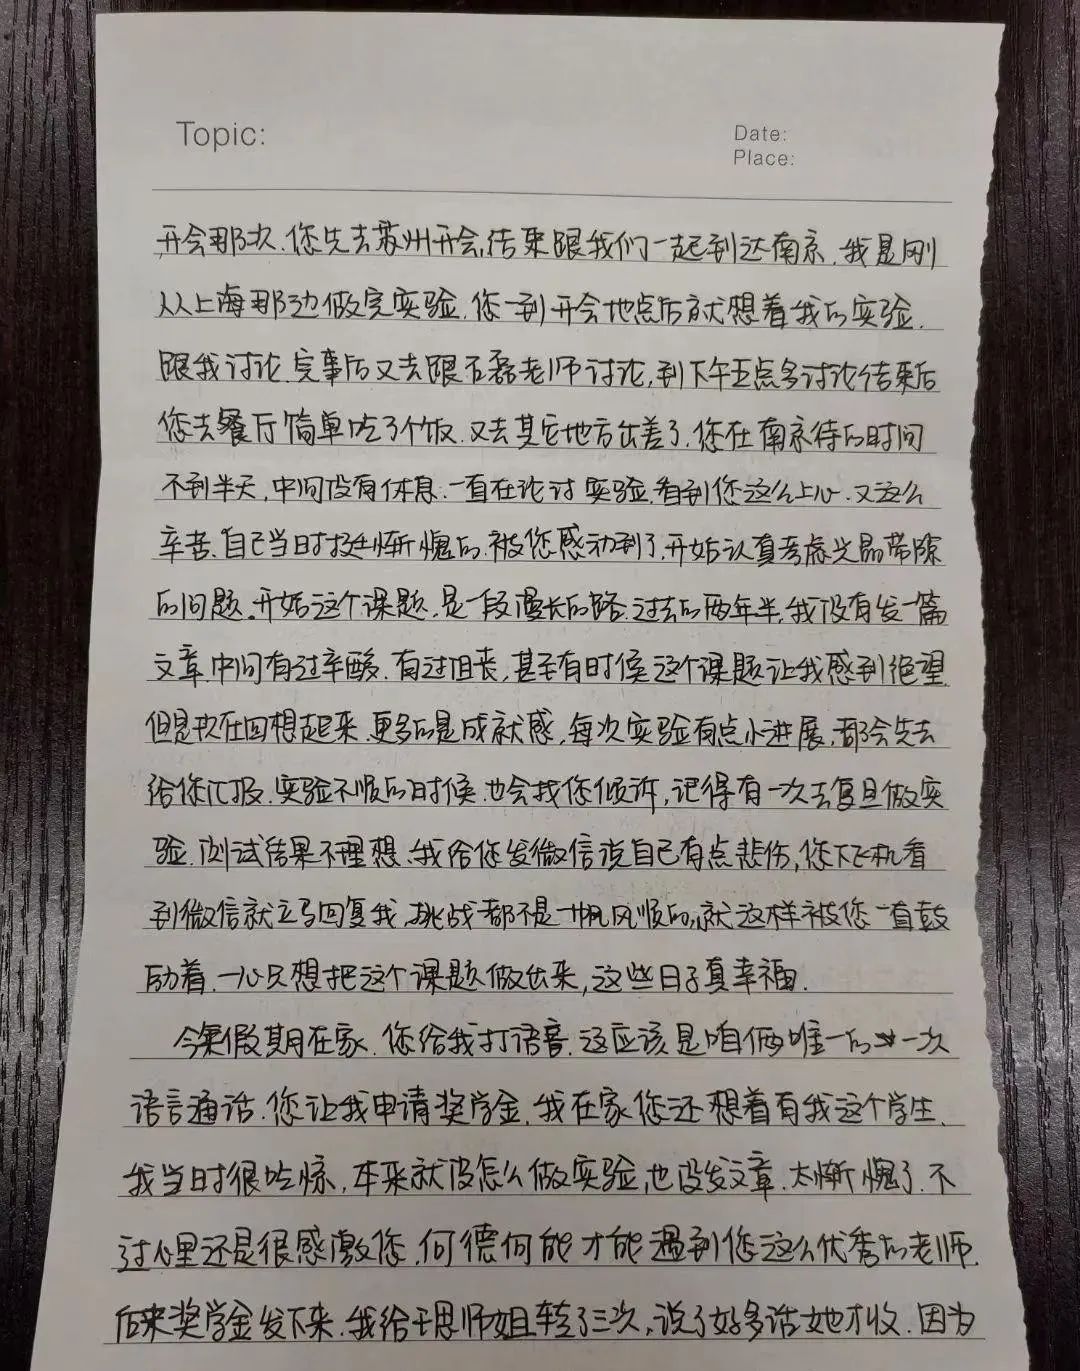 Topic:
Date:
Place:
开会那次.您先去苏州开会,结束跟我们一起到达南京.我是刚
从上海那边做完实验.您一到开会地点后就想着我的实验.
跟我讨论.完事后又去跟石磊老师讨论,到下午五点多讨论结束后
您去餐厅简单吃了个饭.又去其它地方出差了.您在南京待的时间
不到半天,中间没有休息.一直在论讨实验.看到您这么上心.又这么
辛苦.自己当时挺惭愧的.被您感动到了.开始认真考虑光晶带隙
的问题.开始这个课题.是一段漫长的路.过去的两年半.我没有发一篇
文章.中间有过辛酸.有过沮丧,甚至有时候这个课题让我感到绝望.
但是现在回想起来.更多的是成就感.每次实验有点小进展,都会先去
给您汇报.实验不顺的时候.也会找您倾诉,记得有一次去复旦做实
验.测试结果不理想.我给您发微信说自己有点悲伤,您下飞机看
到微信就立马回复我,挑战都不是一帆风顺的,就这样被您一直鼓
励着.一心只想把这个课题做出来,这些日子真幸福.
今年暑假期在家.您给我打语音.这应该是咱俩唯一的一次
语言通话.您让我申请奖学金.我在家您还想着有我这个学生.
我当时很吃惊,本来就没怎么做实验,也没发文章.太惭愧了.不
过心里还是很感激您.何德何能才能遇到您这么优秀的老师.
后来奖学金发下来.我给王思师姐转了三次,说了好多话她才收.因为